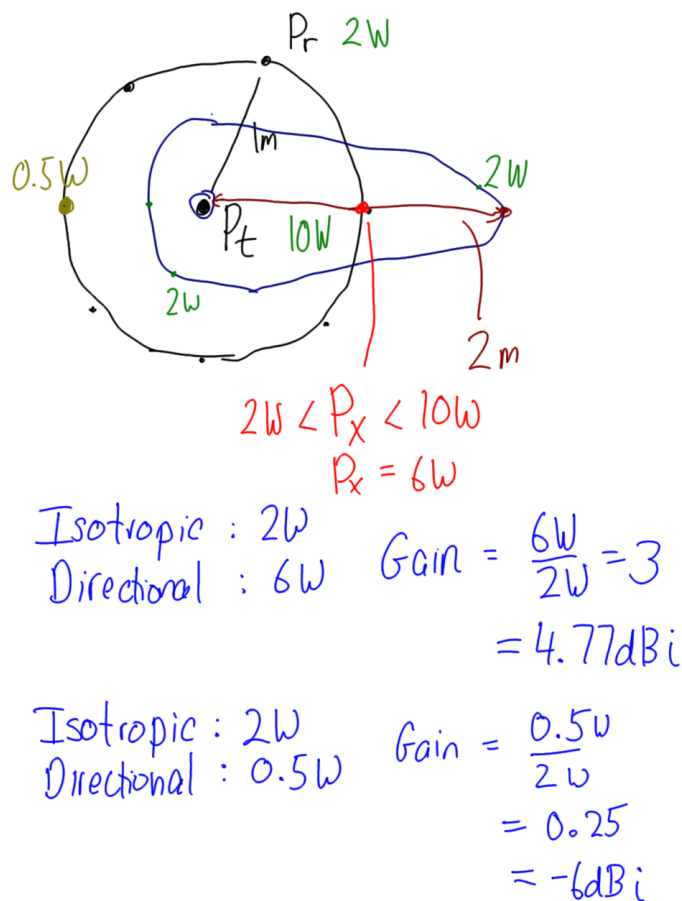 Pr 2W
1m
0.5W
2W
Pt 10W
2W
2m
2W < Px < 10W
Px = 6W
Isotropic : 2W
Directional : 6W
Gain = 6W/2W = 3
= 4.77dBi
Isotropic : 2W
Directional : 0.5W
Gain = 0.5W/2W
= 0.25
= -6dBi